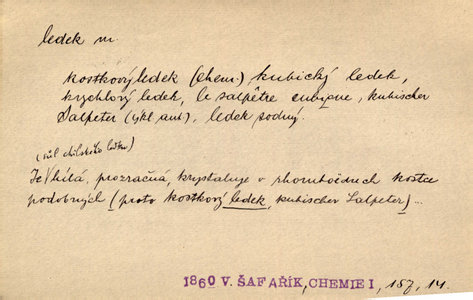 ledek m.
kostkový ledek (chem.) kubický ledek,
krychlový ledek, le salpêtre cubique, kubischer
Salpeter (ekl ant), ledek sodný.
(sůl chilského ledku)
Je bílá, prozračná, krystaluje v rhomboëdrech kostce
podobných (proto kostkový ledek, kubischer Salpeter)...
1860 V. ŠAFAŘÍK, CHEMIE I, 157, 14.